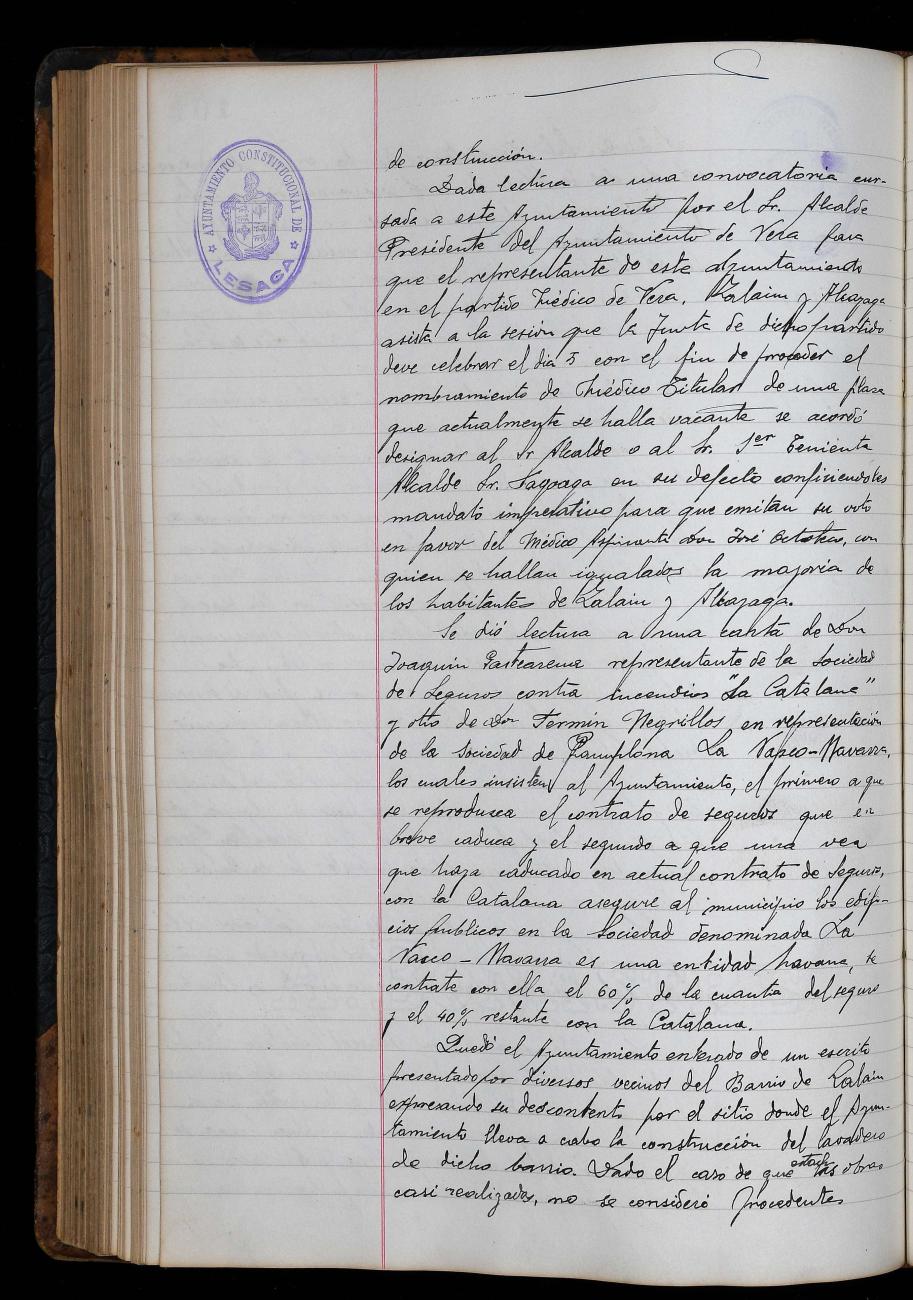 AYUNTAMIENTO CONSTITUCIONAL DE
LESAGA
de construcción.
Dada lectura a una convocatoria cur-
sada a este Ayuntamiento por el Sr. Alcalde
Presidente del Ayuntamiento de Vera para
que el representante de este Ayuntamiento
en el partido Médico de Vera, Zalain y Alcayaga
asista a la sesión que la Junta de dicho partido
deve celebrar el día 5 con el fin de proceder el
nombramiento de Médico Titular de una plaza
que actualmente se halla vacante se acordó
designar al Sr Alcalde o al Sr. 1er Teniente
Alcalde Sr. Fagoaga en su defecto confiriendoles
mandato imperativo para que emitan su voto
en favor del Médico Aspirante Don José con
quien se hallan igualados la mayoría de
los habitantes de Zalain y Alcayaga.
Se dió lectura a una carta de Don
Joaquin representante de la Sociedad
de Seguros contra Incendios "La Catalana"
y otra de Don Fermín Negrillos en representación
de la Sociedad de Pamplona La Vasco-Navarra,
los cuales insisten al Ayuntamiento, el primero a que
se reproduzca el contrato de seguros que en
breve caduca y el segundo a que una vez
que haya caducado en actual contrato de Seguros,
con la Catalana asegure al municipio los edifi-
cios publicos en la Sociedad denominada La
Vasco-Navarra es una entidad navarra, se
contrate con ella el 60% de la cuantia del seguro
y el 40% restante con la Catalana.
Quedó el Ayuntamiento enterado de un escrito
presentado por diversos vecinos del Barrio de Zalain
expresando su descontento por el sitio donde el Ayun-
tamiento lleva a cabo la construcción del lavadero
de dicho barrio. Dado el caso de que están las obras
casi realizadas, no se consideró procedentes